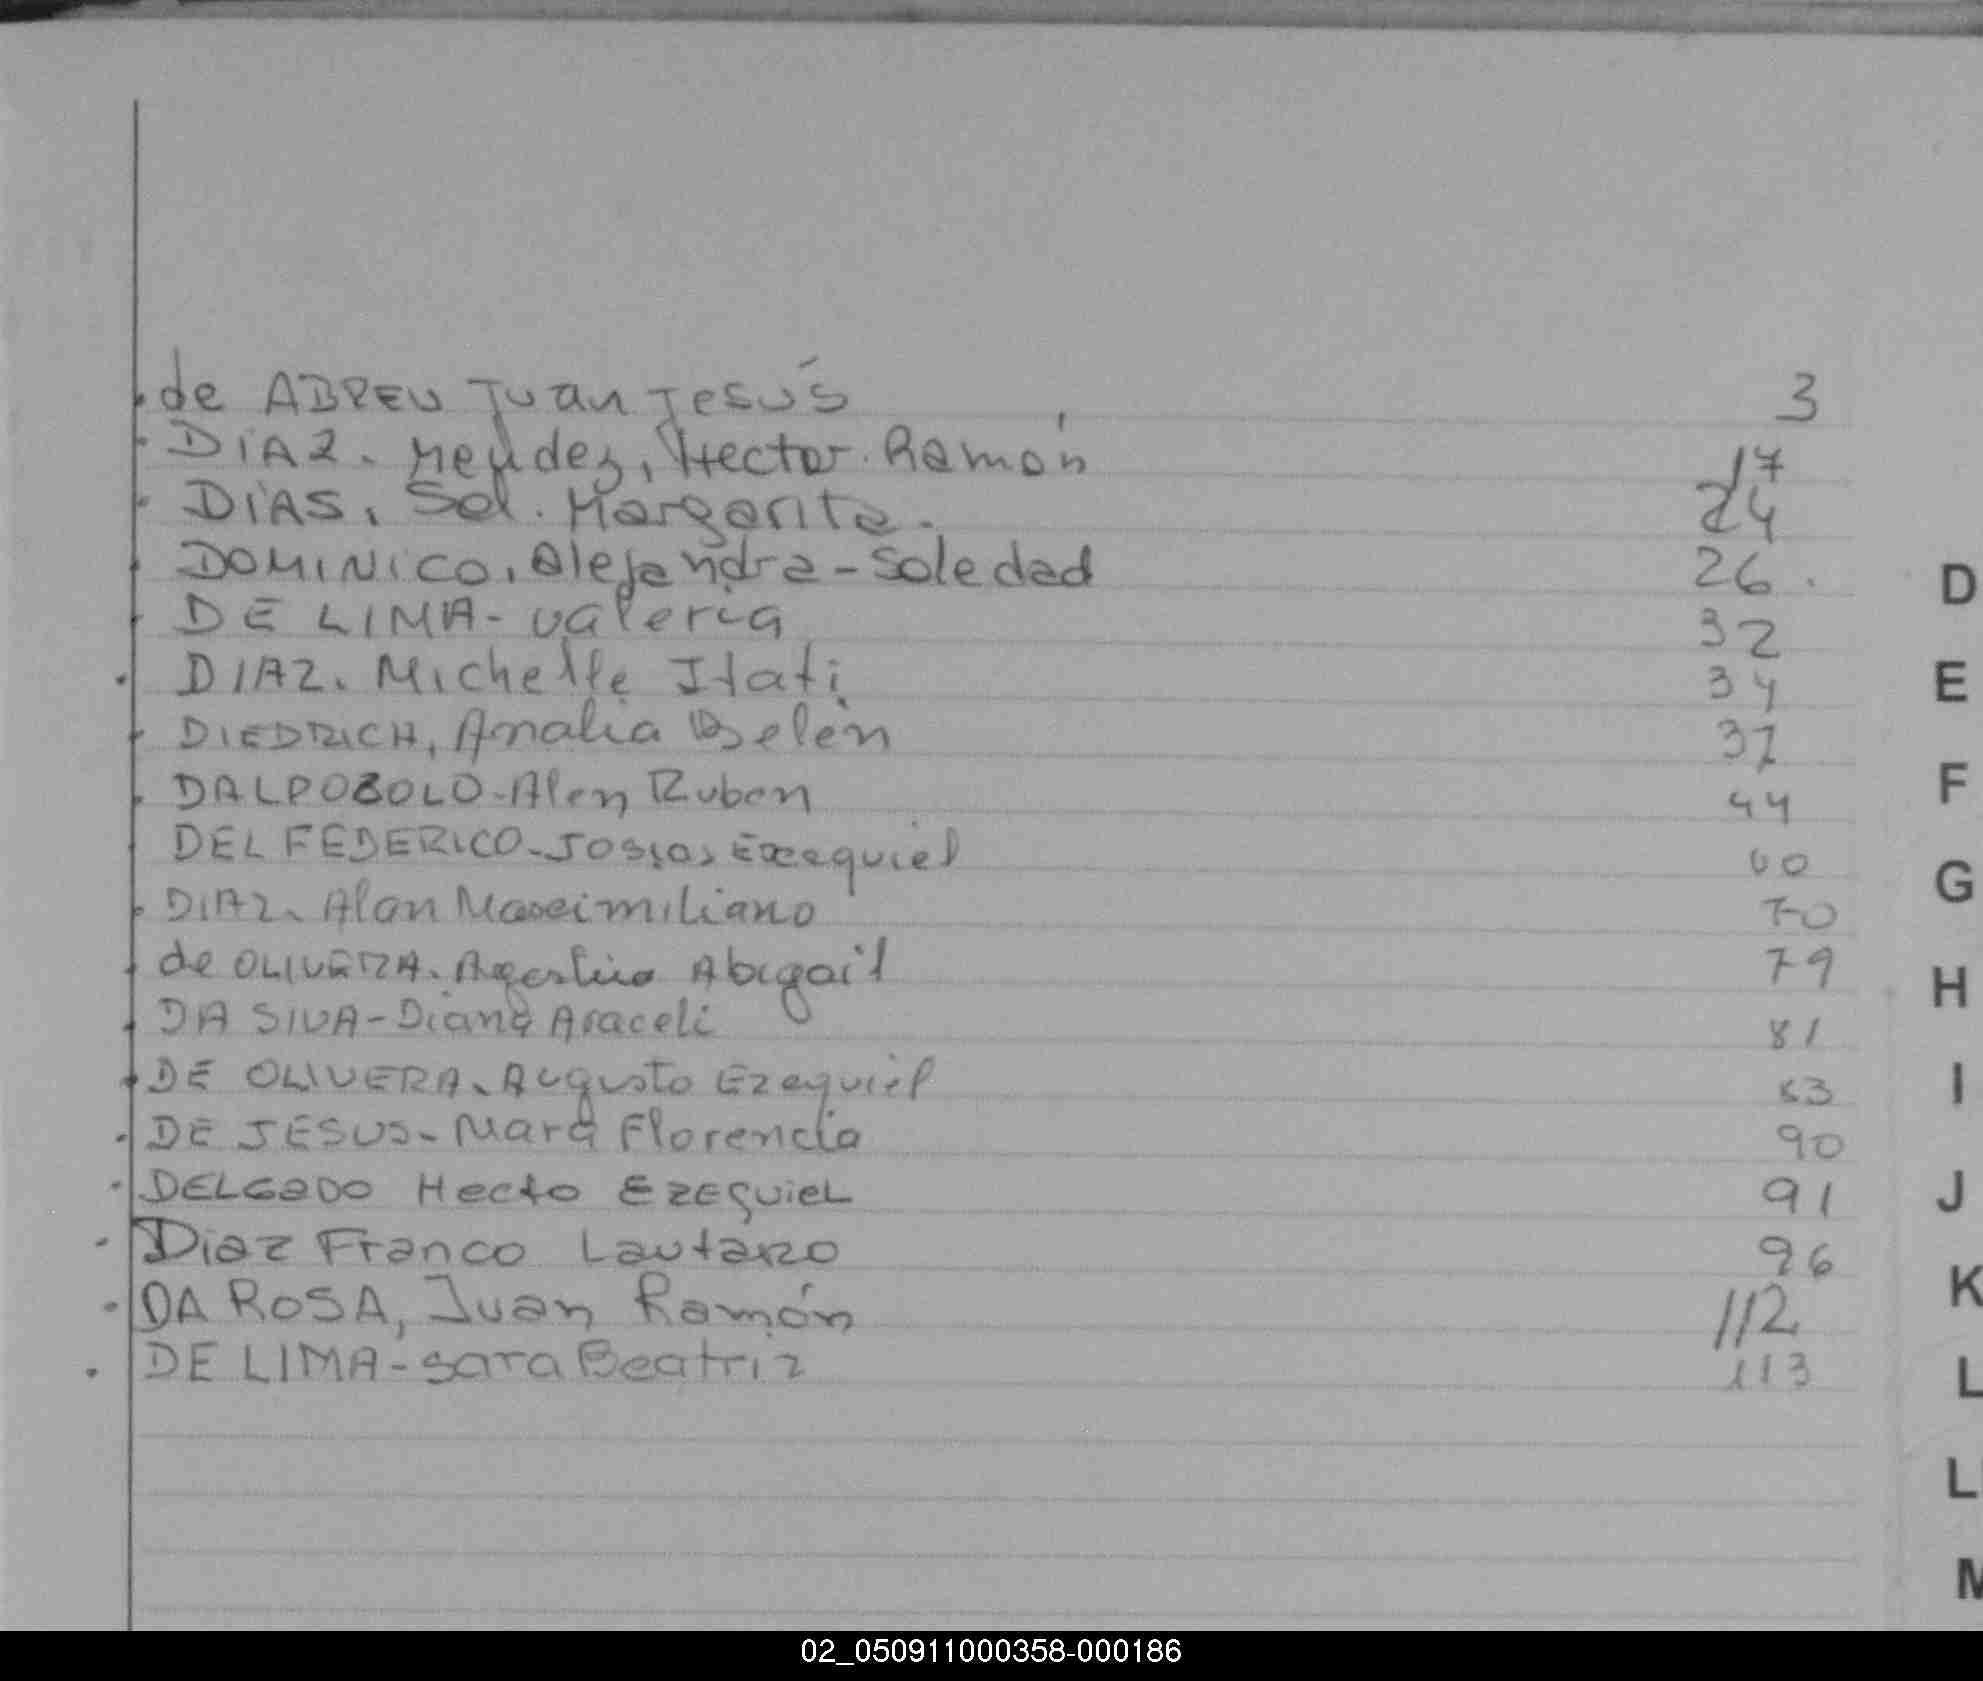 de ABREU Juan Jesús 3
DIAZ. Mendez, Hector. Ramón 17
DIAS, Sol. Margarita. 24
DOMINICO, Alejandra-Soledad 26.
DE LIMA-valeria 32
DIAZ. Michelle Itati 34
DIEDRICH, Analia Belén 37
DALPOBOLO-Alen Ruben 44
DEL FEDERICO-Josias Exequiel 60
DIAZ. Alan Maximiliano 70
de OLIVERA. Abigail 79
DA SIVA-Diana Araceli 81
DE OLIVERA. Augusto Ezequiel 83
DE JESUS-Mara Florencia 90
DELGADO Hecto EZEQUIEL 91
Diaz Franco Lautaro 96
DA ROSA, Juan Ramón 112
DE LIMA-sara Beatriz 113
D
E
F
G
H
I
J
K
L
M
02_050911000358-000186